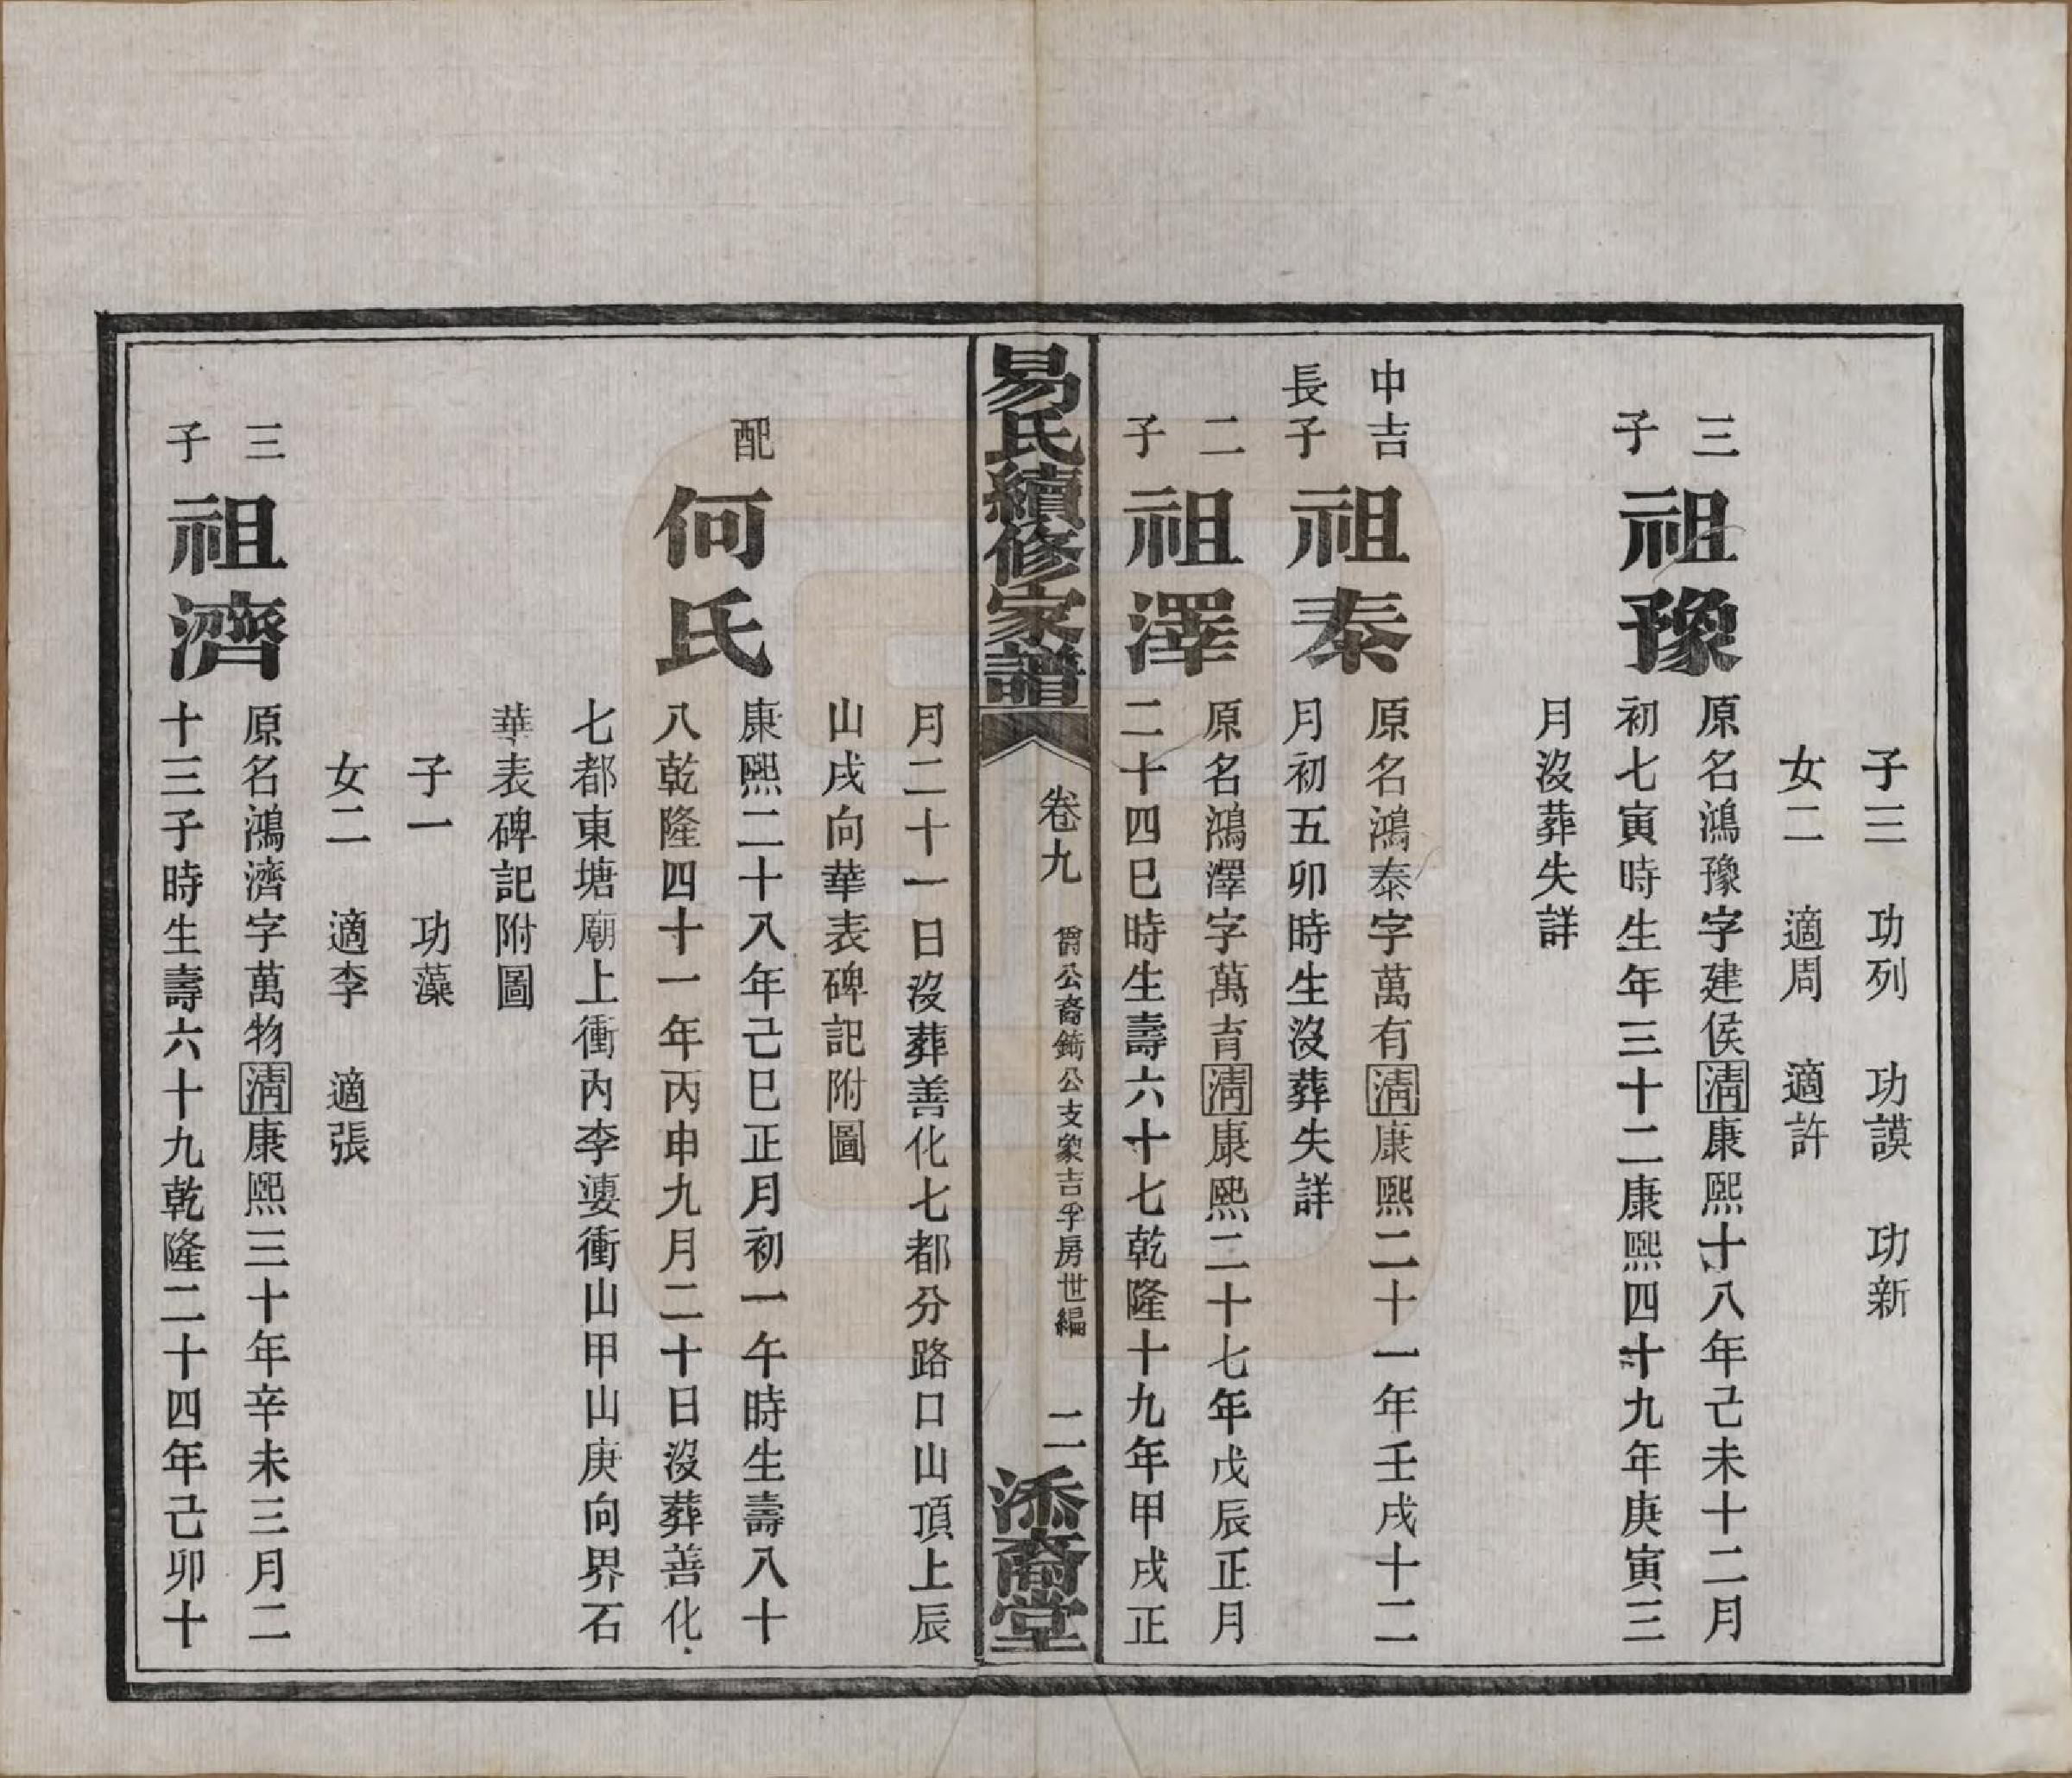 子三　功列　功謨　功新
女二　適周　適許
三子 祖豫 原名鴻豫字建侯清康熙十八年己未十二月
初七寅時生年三十二康熙四十九年庚寅三
月沒葬失詳
中吉長子 祖泰 原名鴻泰字萬有清康熙二十一年壬戌十二
月初五卯時生沒葬失詳
二子 祖澤 原名鴻澤字萬育清康熙二十七年戊辰正月
二十四巳時生壽六十七乾隆十九年甲戌正
易氏續修家譜
卷九　爵公裔錡公支象吉孚房世編　二
添裔堂
月二十一日沒葬善化七都分路口山頂上辰
山戌向華表碑記附圖
配 何氏 康熙二十八年己巳正月初一午時生壽八十
八乾隆四十一年丙申九月二十日沒葬善化
七都東塘廟上衝內李婆衝山甲山庚向界石
華表碑記附圖
子一　功藻
女二　適李　適張
三子 祖濟 原名鴻濟字萬物清康熙三十年辛未三月二
十三子時生壽六十九乾隆二十四年己卯十